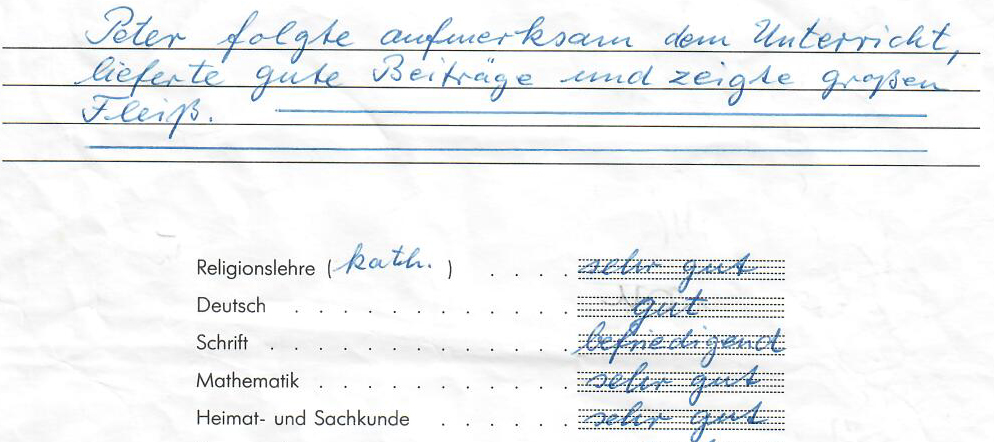 Peter folgte aufmerksam dem Unterricht,
lieferte gute Beiträge und zeigte großen
Fleiß.
Religionslehre (kath.) . . . . sehr gut
Deutsch . . . . . . . . . . . . . gut
Schrift . . . . . . . . . . . . . . befriedigend
Mathematik . . . . . . . . . . . . sehr gut
Heimat- und Sachkunde . . . . . . sehr gut